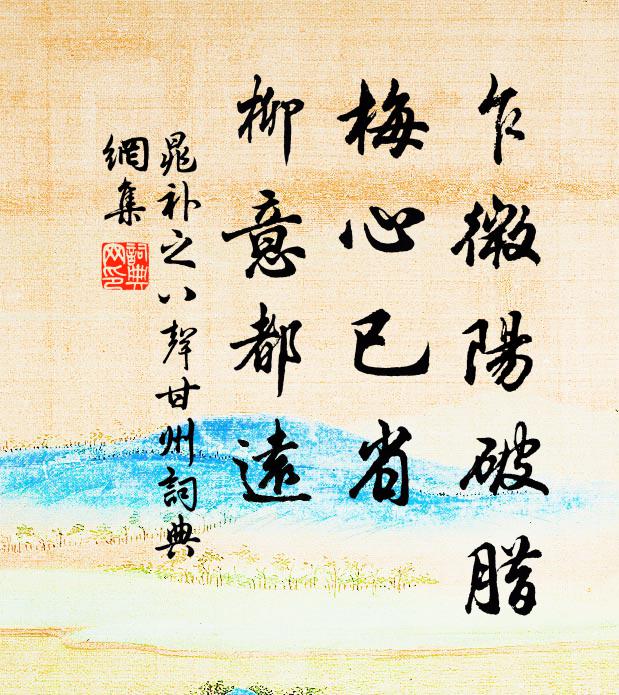 乍微陽破腊
梅心已省
柳意都遠
晁补之八聲甘州詞典
網集
詞典
网印